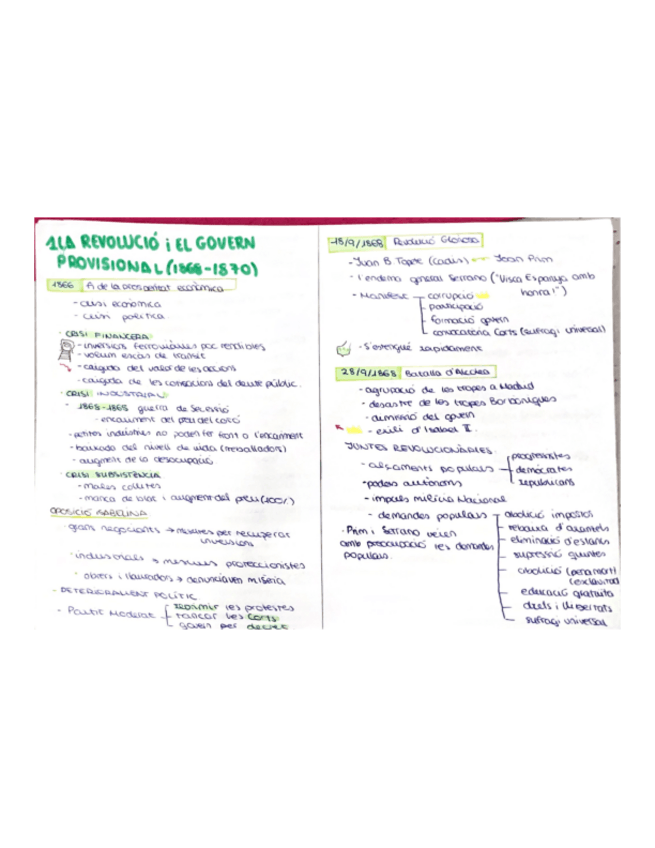 1 LA REVOLUCIÓ i EL GOVERN
PROVISIONAL (1868-1870)
1866 fi de la prosperitat econòmica
- crisi econòmica
- crisi política
· CRISI FINANCERA
- inversions ferroviàries poc rendibles
- volum escàs de trànsit
- caiguda del valor de les accions
- caiguda de les cotitzacions del deute públic.
· CRISI INDUSTRIAL
- 1861-1865 guerra de Secessió
- encariment del preu del cotó
- petites indústries no poden fer front a l'encariment
- baixada del nivell de vida (treballadors)
- augment de la desocupació
· CRISI SUBSISTÈNCIA
- males collites
- manca de blat i augment del preu (100%)
OPOSICIÓ ISABELINA
· grans negociants → mesures per recuperar
inversions
· industrials → mesures proteccionistes
· obrers i llauradors → denunciaven misèria
- DETERIORAMENT POLÍTIC
- Partit Moderat
reprimir les protestes
tancar les Corts
govern per decret
18/9/1868 Revolució Gloriosa
- Juan B Topete (Cadis) Joan Prim
- l'endemà general Serrano ("Visca Espanya amb
honra!")
- Manifest
corrupció
participació
formació govern
convocatòria Corts (sufragi universal)
- S'estengué ràpidament
28/9/1868 Batalla d'Alcolea
- agrupació de les tropes a Madrid
- desastre de les tropes Borbòniques
- dimissió del govern
- exili d'Isabel II.
JUNTES REVOLUCIONÀRIES
- alçaments populars
progressistes
demòcrates
republicans
- poders autònoms
- impuls milícia Nacional
- demandes populars
abolició impostos
rebaixa d'aranzels
eliminació d'estancs
supressió quintes
abolició (pena mort)
(esclavitud)
educació gratuïta
drets i llibertats
sufragi universal
· Prim i Serrano veien
amb preocupació les demandes
populars.